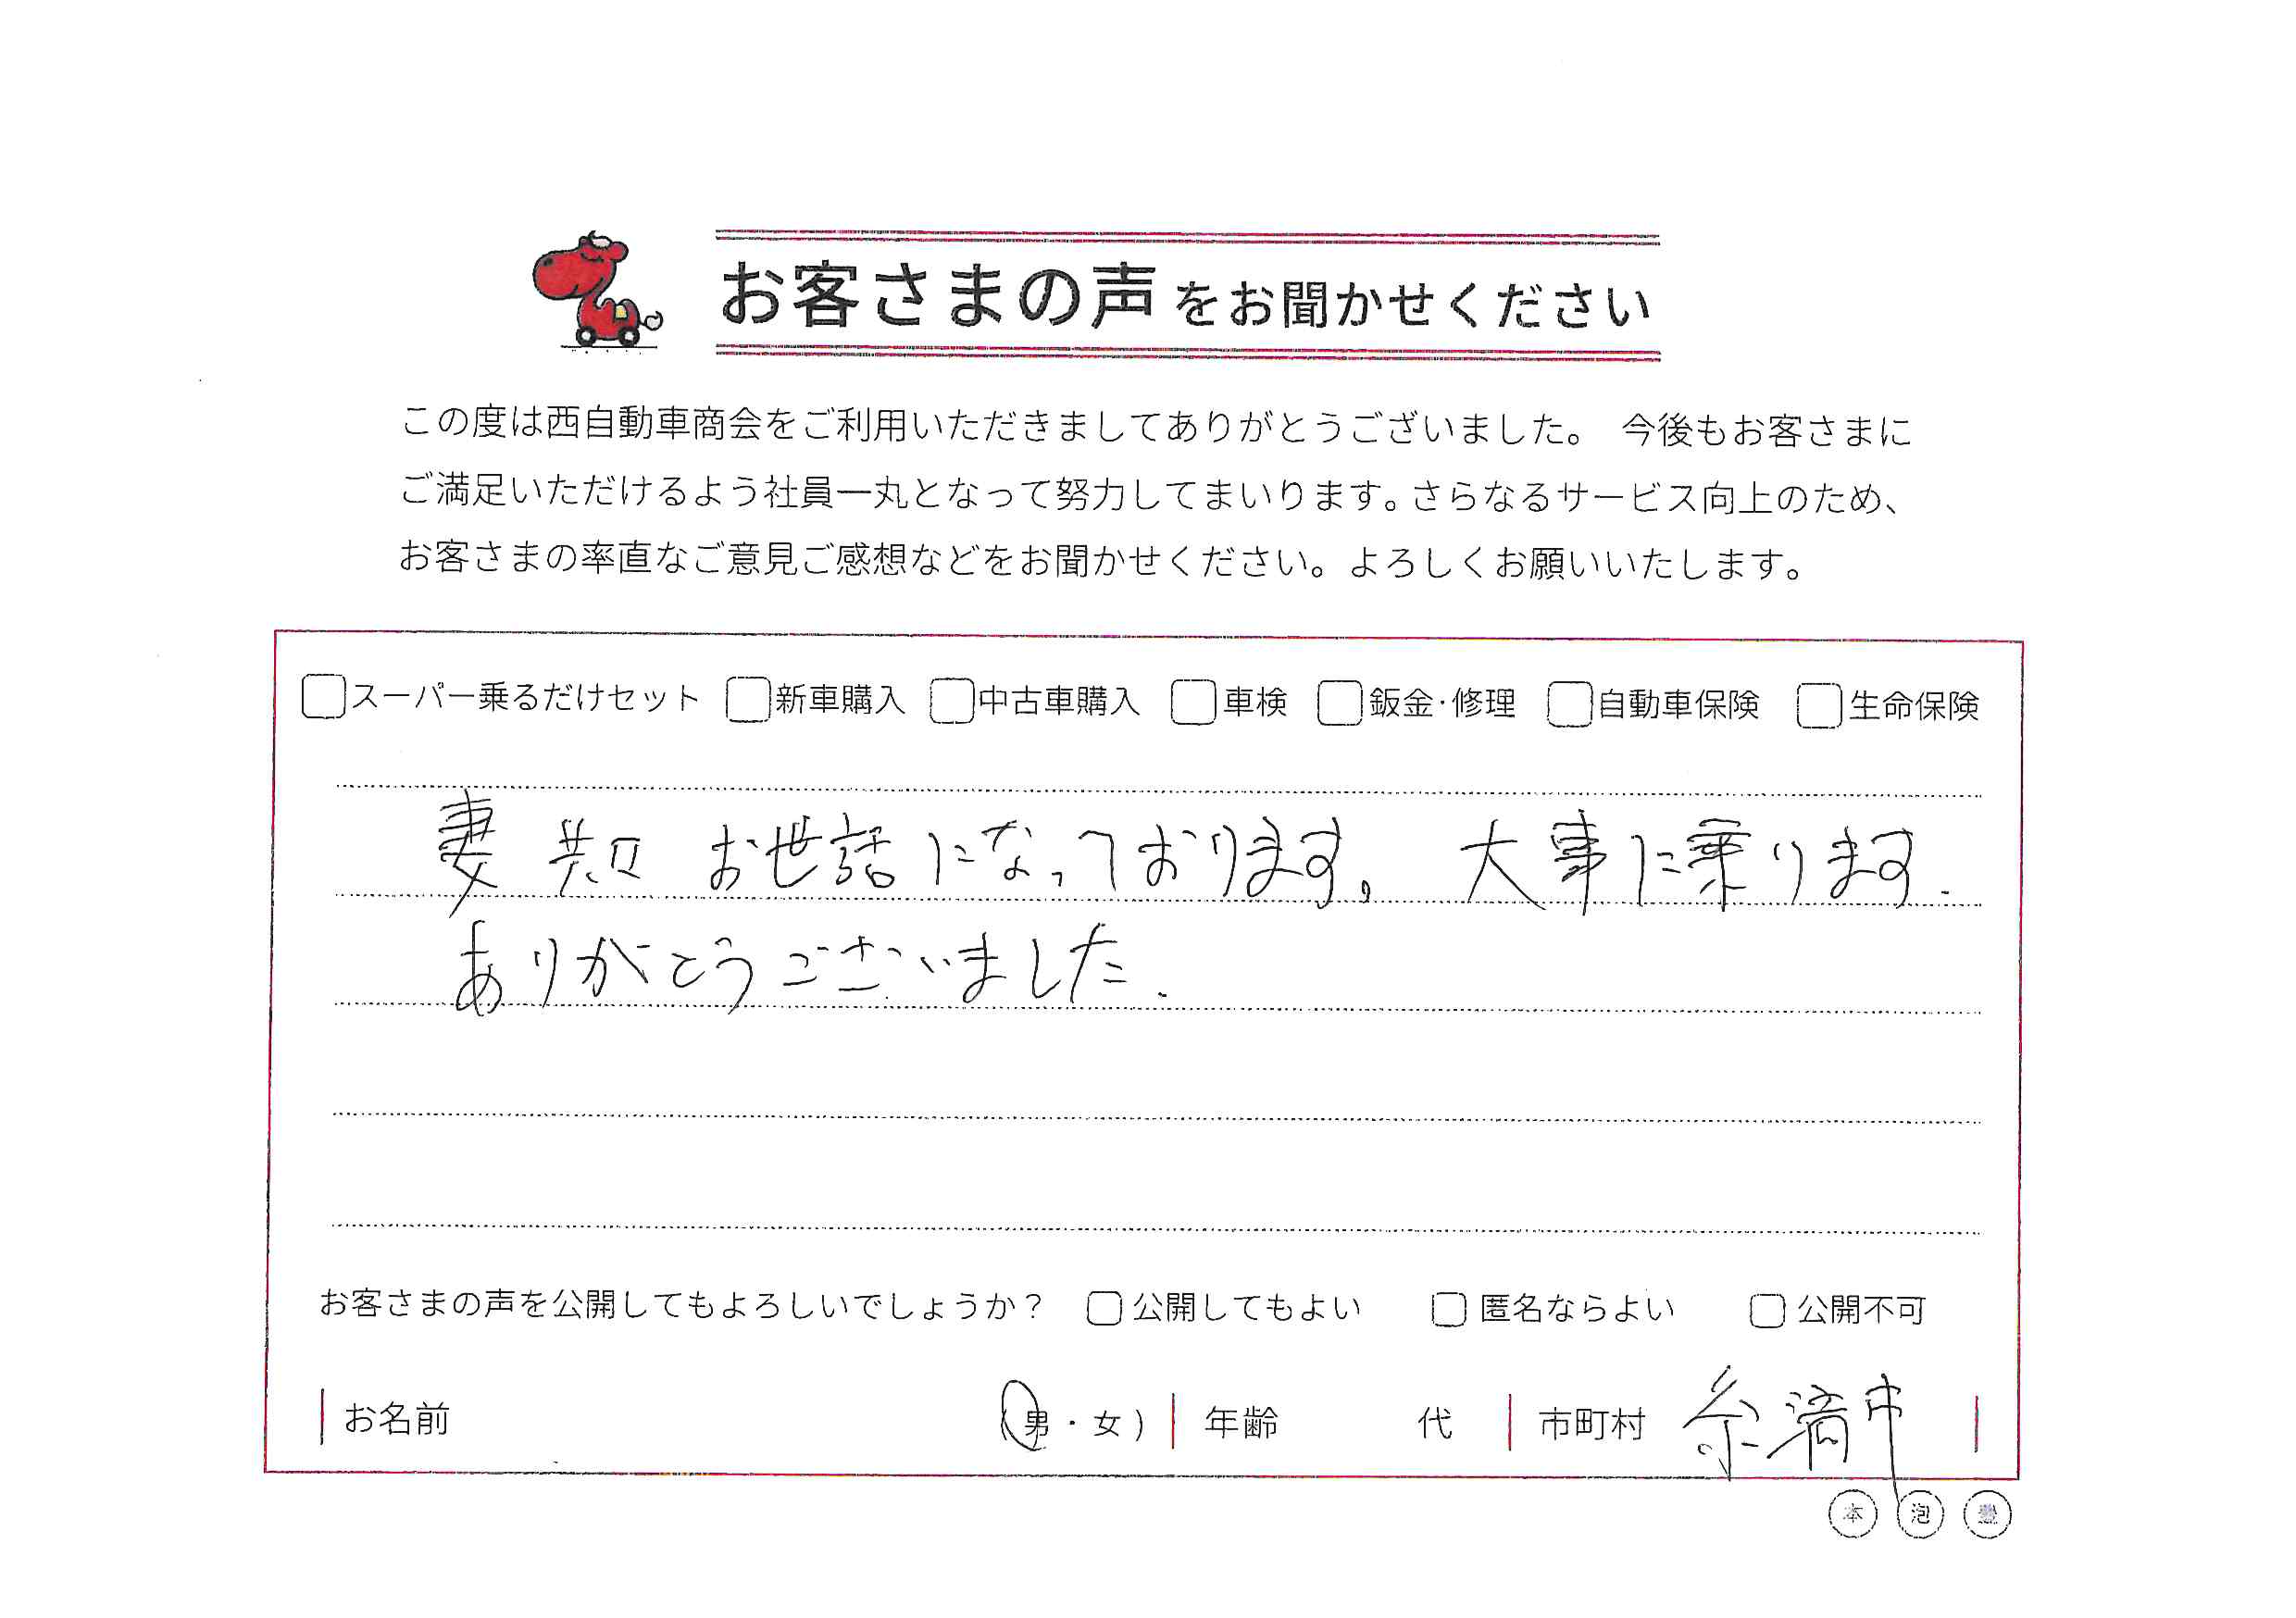 お客さまの声をお聞かせください
この度は西自動車商会をご利用いただきましてありがとうございました。 今後もお客さまに
ご満足いただけるよう社員一丸となって努力してまいります。さらなるサービス向上のため、
お客さまの率直なご意見ご感想などをお聞かせください。よろしくお願いいたします。
スーパー乗るだけセット 新車購入 中古車購入 車検 鈑金・修理 自動車保険 生命保険
妻共々 お世話になっております。 大事に乗ります.
ありがとうございました.
お客さまの声を公開してもよろしいでしょうか？ 公開してもよい 匿名ならよい 公開不可
お名前 (男・女) 年齢 代 市町村 糸満市
本 泡 豊